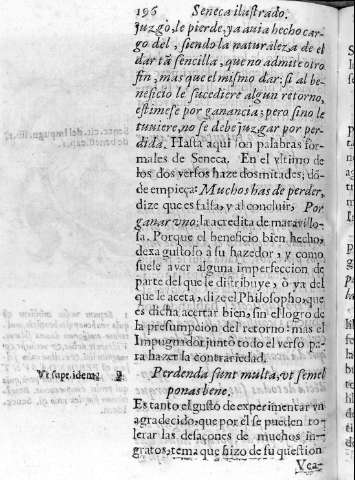 196 Seneca ilustrado.
juzgo, le pierde, ya auia hecho car-
go del, siendo la naturaleza de el
dar tã sencilla, que no admite otro
fin, mas que el mismo dar: si al be-
neficio le sucediere algun retorno,
estimese por ganancia; pero sino le
tuuiere, no se debe juzgar por per-
dida. Hasta aqui son palabras for-
males de Seneca. En el vltimo de
los dos versos haze dos mitades; dõ-
de empieça: Muchos has de perder,
dize que es falsa, y al concluir, Por
ganar vno; la acredita de marauillo-
sa. Porque el beneficio bien hecho,
dexa gustoso à su hazedor, y como
suele aver alguna imperfeccion de
parte del que le distribuye, ò ya del
que le aceta, dize el Philosopho, que
es dicha acertar bien, sin el logro de
la presumpcion del retorno: mas el
Impugnador juntò todo el verso pa-
ra hazer la contrariedad.
Vt supr. idem. Perdenda sunt multa, vt semel
ponas bene.
Es tanto el gusto de experimentar vn
agradecido, que por el se pueden to-
lerar las desaçones de muchos in-
gratos, tema que hizo de su question
Vea-